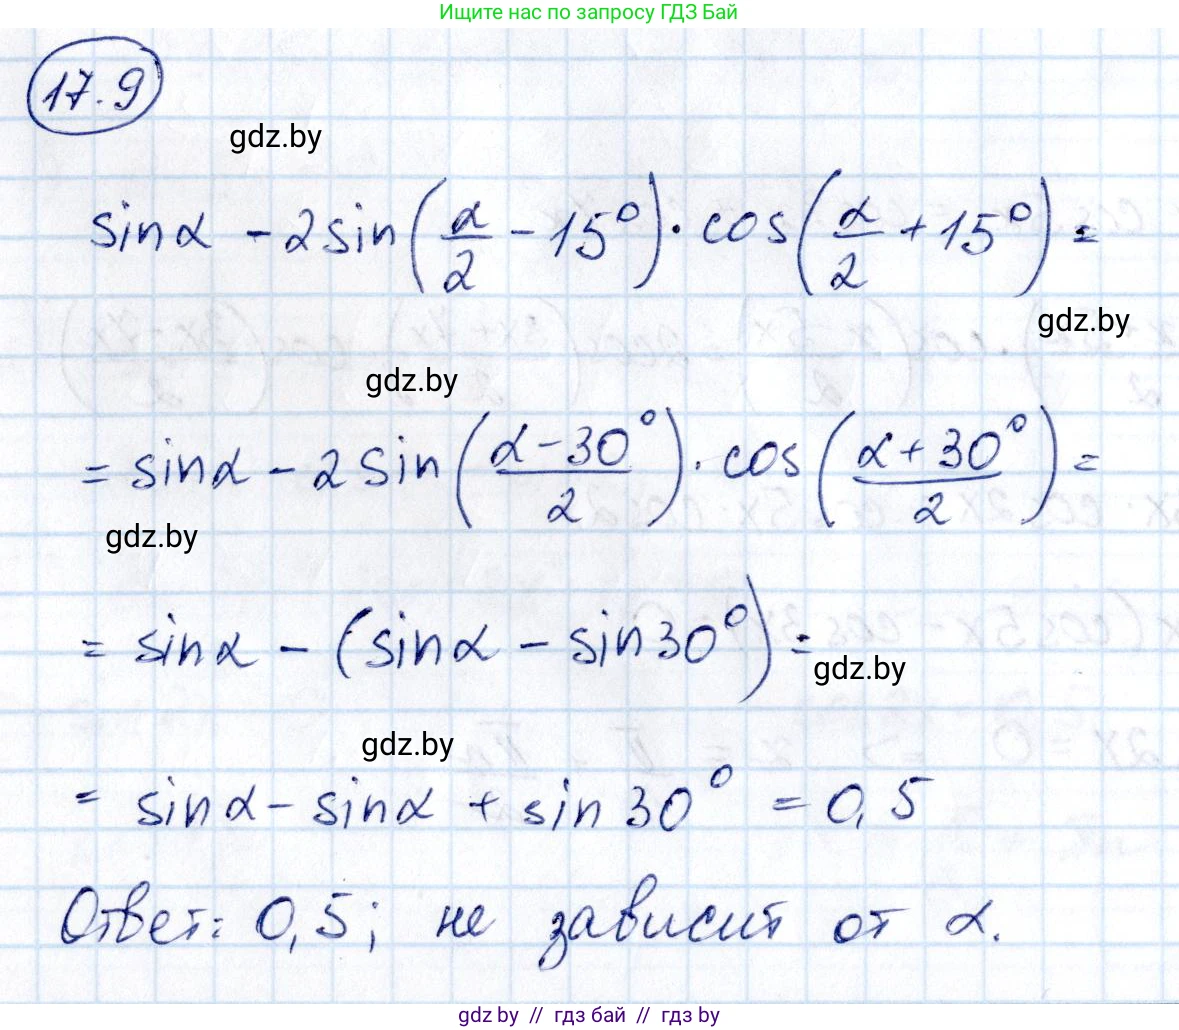 Ищите нас по запросу ГДЗ Бай
17.9
gdz.by
sinα - 2sin(α/2 - 15°) · cos(α/2 + 15°) =
gdz.by
gdz.by
= sinα - 2sin((α - 30°)/2) · cos((α + 30°)/2) =
gdz.by
= sinα - (sinα - sin30°) =
gdz.by
gdz.by
= sinα - sinα + sin30° = 0,5
Ответ: 0,5; не зависит от α.
gdz.by // гдз бай // гдз by